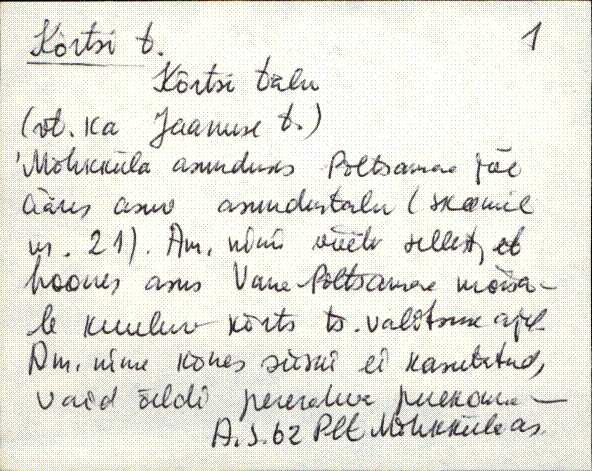 Kõrtsi t. 1
Kõrtsi talu
(vt. ka Jaanuse t.)
Mõhkküla asunduses Põltsamaa jõe
ääres asuv asundustalu (skeemil
nr. 21). Am. nimi sellest, et
hoones asus Vana-Põltsamaa mõisa-
le kuuluv kõrts ts. valitsuse ajal.
Am. nime kõnes siiski ei kasutatud,
vaid öeldi pererahva
A.S. 62 Plt Mõhkküla as.